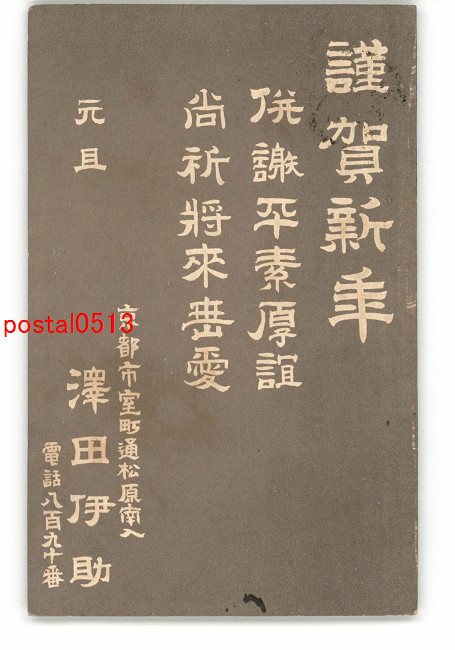 謹賀新年
併謝平素厚誼
尚祈将来垂愛
元旦
京都市室町通松原南入
澤田伊助
電話八百九十番
postal0513